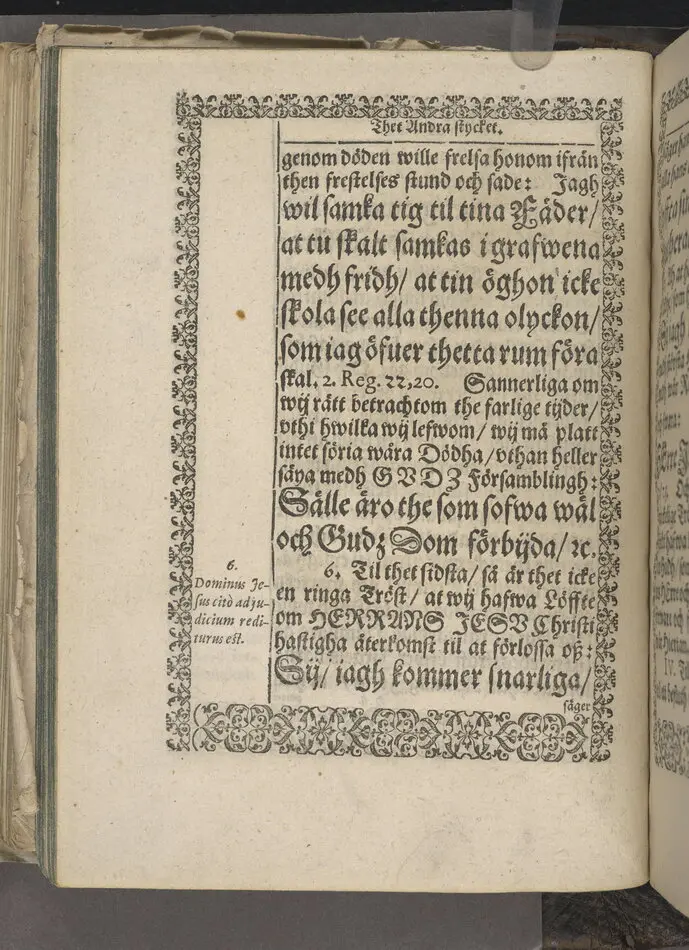 Thet Andra stycket.
genom döden wille frelsa honom ifrån
then frestelses stund och sade: Jagh
wil samka tig til tina Fäder/
at tu skalt samkas i grafwena
medh fridh/ at tin öghon icke
skola see alla thenna olyckon/
som iag öfuer thetta rum föra
skal. 2. Reg. 22,20. Sannerliga om
wij rätt betrachtom the farlige tijder/
vthi hwilka wij lefwom/ wij må platt
intet söria wåra Dödha/ vthan heller
säya medh GVDZ Församblingh:
Sälle äro the som sofwa wäl
och Gudz Dom förbijda/ ꝛc.
6. Til thet sidsta/ så är thet icke
en ringa Tröst/ at wij hafwa Löffte
om HERRANS JESV Christi
hastigha återkomst til at förlossa oß:
Sij/ iagh kommer snarliga/
säger
6.
Dominus Je-
sus citò ad ju-
dicium redi-
turus est.